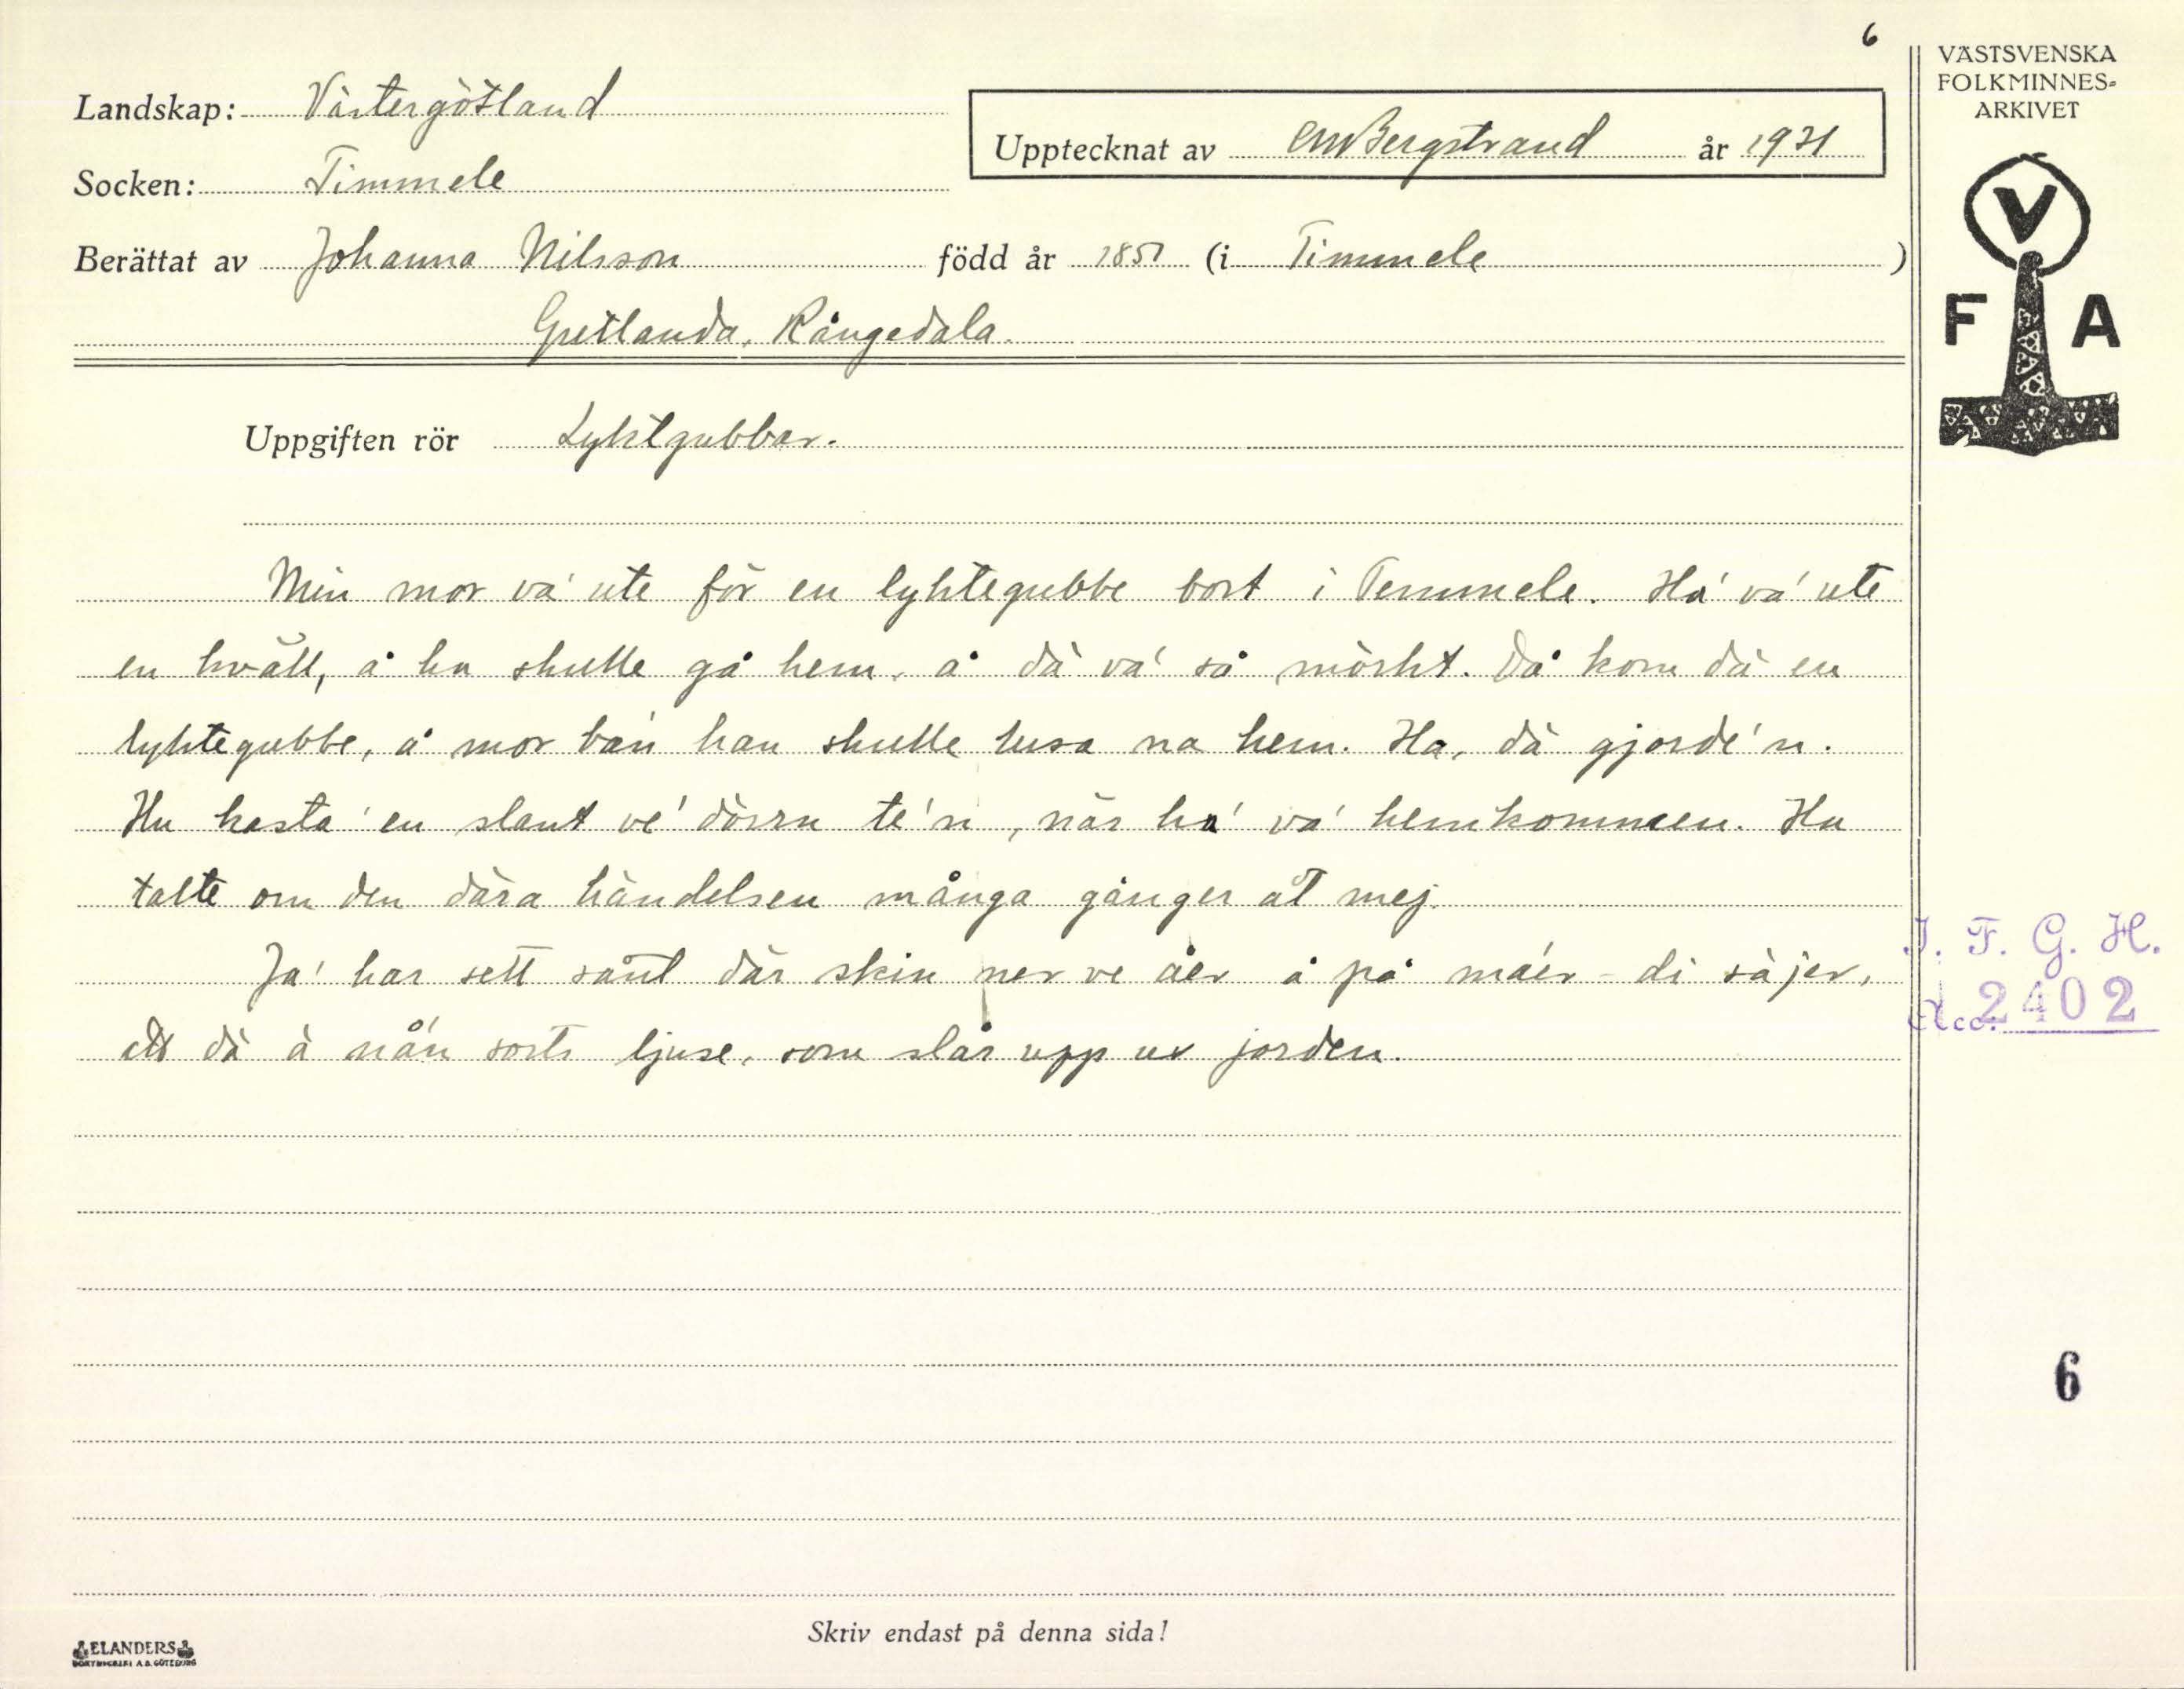 6
VÄSTSVENSKA
FOLKMINNES-
ARKIVET
Landskap: Västergötland
Upptecknat av CMBergstrand år 1931
Socken: Timmele
Berättat av Johanna Nilsson född år 1851 (i Timmele)
Gretlanda, Rångedala.
V
F A
Uppgiften rör Lyktgubbar.
Min mor va' ute för en lyktegubbe bort i Temmele. Ha' va' ute
en kväll, å ha skulle gå hem, å dä va' så mörkt. Då kom dä en
lyktegubbe, å mor ba'n han skulle lusa na hem. Ha, dä gjorde'n.
Hu kasta' en slant ve' dörrn te'n, när ha' va' hemkommen. Hu
talte om den dära händelsen många gånger åt mej.
Ja' har sett sånt där skin ner ve åer å på måer – di säjer,
att dä ä nå'n sorts ljuse, som slår upp ur jorden.
I. F. G. H.
Acc. 2402
6
Skriv endast på denna sida!
ELANDERS
BOKTRYCKERI A.B. GÖTEBORG